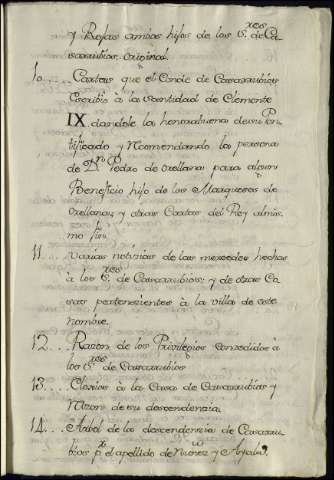 y Rojas ambos hijos de los S.res de Ca
sarrubios, original.
10.... Cartas que el Conde de Casarrubios
Escribio à la Santidad de Clemente
IX dandole la henorabuena de su Pon
tificado y Recomendando la persona
de Dn. Pedro de Orellana para algun
Beneficio hijo de los Marqueses de
Orellana; y otras Cartas del Rey al mis
mo fin.
11.... Varias noticias de las mercedes hechas
à los S.res de Casarrubios; y de otras Co
sas pertenecientes à la villa de este
nombre.
12.... Razon de los Privilegios concedidos à
los S.res de Casarrubios
13... Elogios à la Casa de Casarrubios y
Razon de su descendencia.
14... Arbol de la descendencia de Casarru
bios p.r el apellido de Nuñez y Ayala,